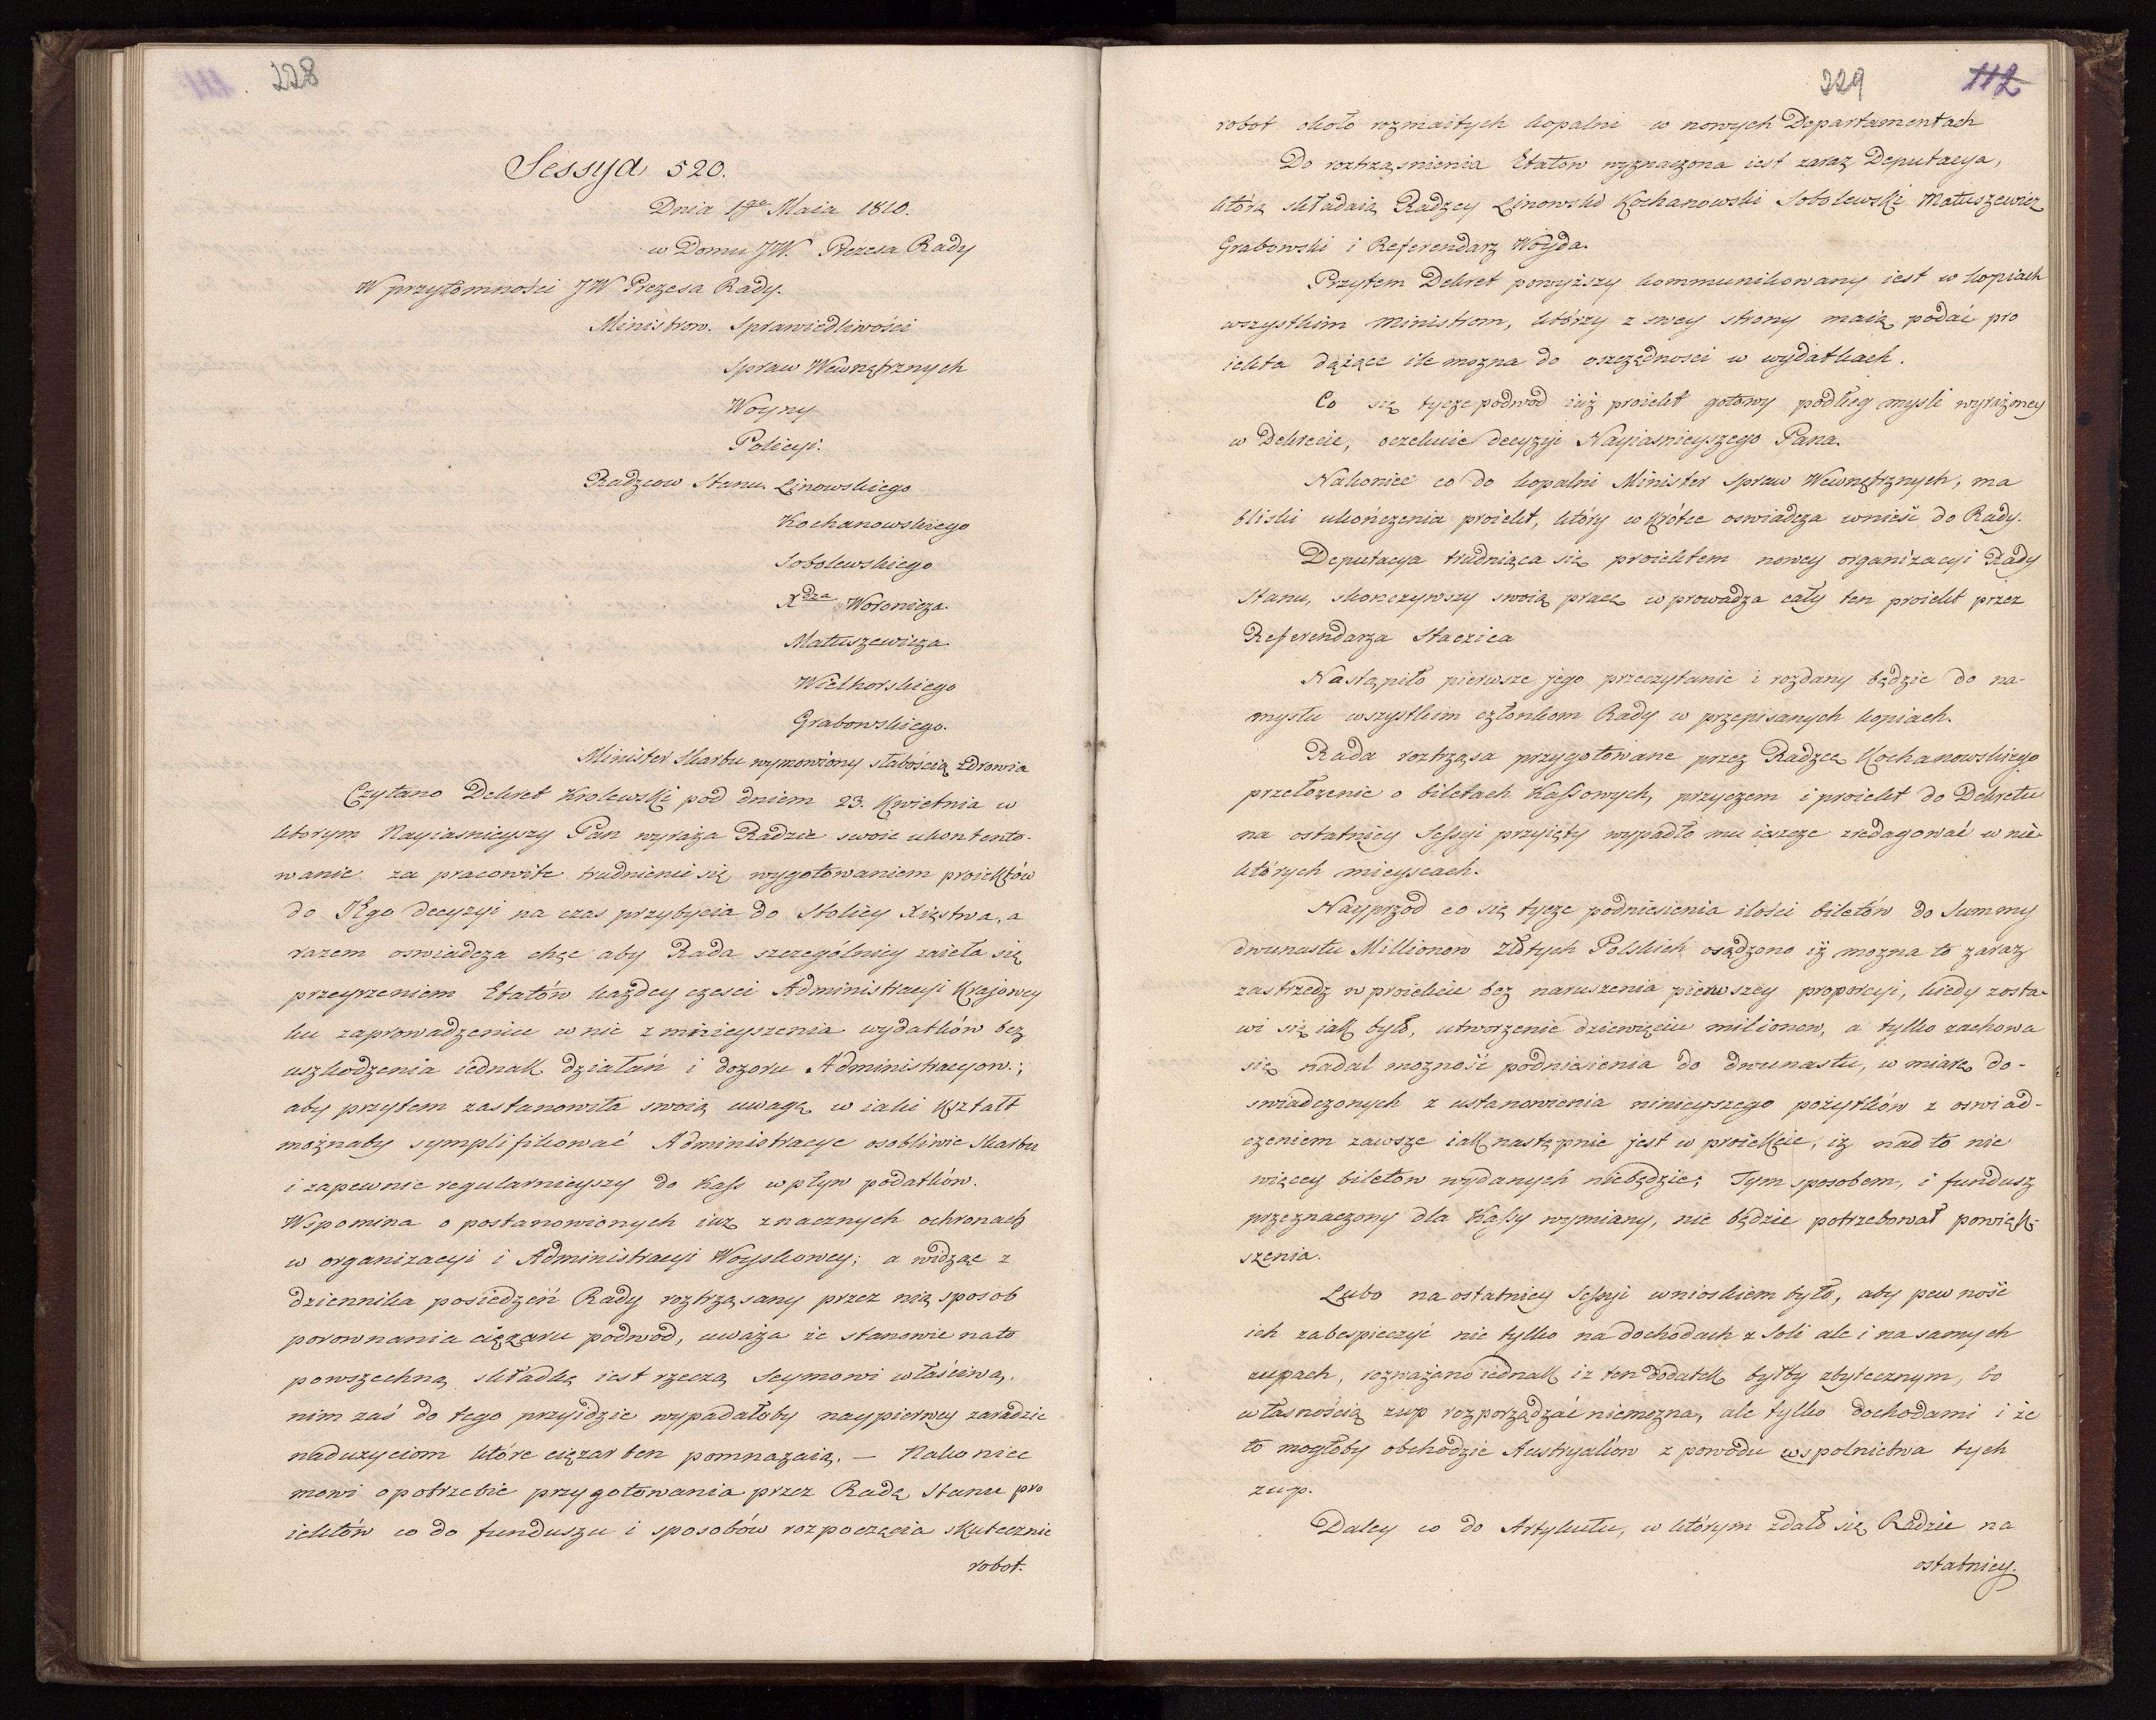 228
Sessya 520.
Dnia 1go Maia 1810.
w Domu JW. Prezesa Rady
W przytomności JW Prezesa Rady.
Ministrow. Sprawiedliwości
Spraw Wewnętrznych
Woyny
Policyi.
Radzcow Stanu. Linowskiego
Kochanowskiego
Sobolewskiego
Xdza Woronicza.
Matuszewicza
Wielhorskiego
Grabowskiego.
Minister Skarbu wymowiony słabością zdrowia
Czytano Dekret Krolewski pod dniem 23. Kwietnia w
ktorym Nayiasnieyszy Pan wyraża Radzie swoie ukontento-
wanie za pracowite trudnienie się wygotowaniem proiektów
do Jego decyzyi na czas przybycia do Stolicy Xięstwa, a
razem oswiadcza chęc aby Rada szczególniey zaieła się
przeyrzeniem Etatów każdey części Administracyi Krajowey
ku zaprowadzeniu w nie zmnieyszenia wydatków bez
uszkodzenia iednak działań i dozoru Administracyow.;
aby przytem zastanowiła swoią uwagę w iaki kształt
możnaby symplifikować Administracye osobliwie Skarbu
i zapewnic regularnieyszy do Kass wpływ podatków.
Wspomina o postanowionych iuz znacznych ochronach
w organizacyi i Administracyi Woyskowey; a widząc z
dziennika posiedzeń Rady roztrząsany przez nią sposob
porownania ciężaru podwod, uważa że stanowie nato
powszechną składkę iest rzeczą Seymowi właściwą,
nim zaś do tego przyidzie wypadałoby naypierwey zaradzic
naduzyciom które ciężar ten pomnazaią. — Nakoniec
mowi o potrzebie przygotowania przez Radę Stanu pro
iektów co do funduszu i sposobów rozpoczęcia skutecznie
robot.
229
112
robot około rozmaitych kopalni w nowych Departamentach
Do roztrząsnienia Etatow wyznaczona iest zaraz Deputacya,
którą składaią Radzcy Linowski Kochanowski Sobolewski Matuszewicz
Grabowski i Referendarz Woyda.
Przytem Dekret powyższy kommunikowany iest w kopiach
wszystkim Ministrom, którzy z swey strony maią podać pro
iekta dążące ile mozna do oszczędnosci w wydatkach.
Co się tycze podwod iuż proiekt gotowy podług mysli wyrażoney
w Dekrecie, oczekuie decyzyi Nayiasnieyszego Pana.
Nakoniec co do kopalni Minister Spraw Wewnętrznych, ma
bliski ukończenia proiekt, który wkrótce oswiadcza wnieść do Rady.
Deputacya trudniąca się proiektem nowey organizacyi Rady
Stanu, skonczywszy swoią pracę wprowadza cały ten proiekt przez
Referendarza Staszica
Nastąpiło pierwsze jego przeczytanie i rozdany będzie do na-
mysłu wszystkim członkom Rady w przepisanych kopiach.
Rada roztrząsa przygotowane przez Radzcę Kochanowskiego
przełozenie o biletach Kassowych, przyczem i proiekt do Dekretu
na ostatniey Sessyi przyięty wypadło mu ieszcze zredagować w nie
których mieyscach.
Nayprzod co się tycze podniesienia ilości biletów do Summy
dwunastu Millionow Złotych Polskich osądzono iż mozna to zaraz
zastrzedz w proiekcie bez naruszenia pierwszey proporcyi, kiedy zosta-
wi się iak było, utworzenie dziewięciu milionow, a tylko zachowa
się nadal mozność podniesienia do dwunastu, w miarę do-
swiadczonych z ustanowienia ninieyszego pożytków z oswiad-
czeniem zawsze iak następnie jest w proiekcie, iż nad to nie
więcey biletow wydanych niebędzie; Tym sposobem, i fundusz
przeznaczony dla Kassy wymiany, nie będzie potrzebował powięk-
szenia.
Lubo na ostatniey Sessyi wnioskiem było, aby pewność
ich zabespieczyć nie tylko na dochodach z Soli ale i na samych
zupach, rozważano iednak iz ten dodatek byłby zbytecznym, bo
własnością zup rozporządzać niemozna, ale tylko dochodami i że
to mogłoby obchodzic Austryaków z powodu wspolnictwa tych
zup.
Daley co do Artykułu, w którym zdało się Radzie na
ostatniey.